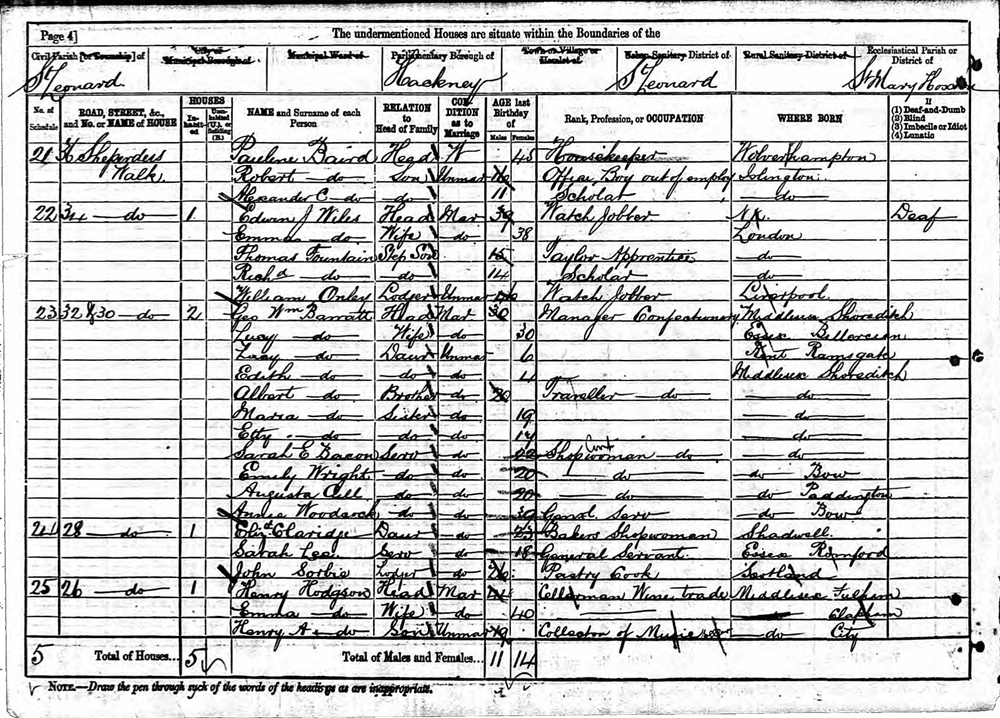 Page 4] The undermentioned Houses are situate within the Boundaries of the
Civil Parish [or Township] of City or Municipal Borough of Municipal Ward of Parliamentary Borough of Town or Village or Hamlet of Urban Sanitary District of Rural Sanitary District of Ecclesiastical Parish or District of
St Leonard Hackney St Leonard St Mary Hoxton
No. of Schedule ROAD, STREET, &c., and No. or NAME of HOUSE HOUSES Inhabited Uninhabited (U.), or Building (B.) NAME and Surname of each Person RELATION to Head of Family CONDITION as to Marriage AGE last Birthday of Males Females Rank, Profession, or OCCUPATION WHERE BORN If (1) Deaf-and-Dumb (2) Blind (3) Imbecile or Idiot (4) Lunatic
21 Sheperdess Pauline Baird Head W 45 Housekeeper Wolverhampton
Walk Robert do Son Unmar 16 Office Boy out of employ Islington
Alexander C do do 11 Scholar do
22 34 do 1 Edwin J Wiles Head Mar 39 Watch Jobber N.K. Deaf
Emma do Wife do 38 London
Thomas Fountain Step Son 15 Taylor Apprentice do
Richd do do 14 Scholar do
William Onley Lodger Unmar Watch Jobber Liverpool
23 32 & 30 do 2 Geo Wm Barratt Head Mar 30 Manager Confectionery Middlesex Shoreditch
Lucy do Wife do 30 Essex Billercian
Lucy do Daur Unmar 6 Kent Ramsgate
Edith do do do 4 Middlesex Shoreditch
Albert do Brother do 20 Traveller do do
Maria do Sister do 19 do
Etty do do do 17 do
Sarah E Bacon Serv do 22 Shopwoman do do
Emily Wright do do 20 do do Bow
Augusta Cell do do 20 do do Paddington
Annie Woodcock do do 39 Genal Serv do Bow
24 28 do 1 Elizt Claridge Daur do 23 Bakers Shopwoman Shadwell
Sarah Lee Serv do 18 General Servant Essex Romford
John Sorbie Lodger do 26 Pastry Cook Scotland
25 26 do 1 Henry Hodgson Head Mar 44 Cellerman Wine trade Middlesex Fulham
Emma do Wife do 40 Clapham
Henry A do Son Unmar 19 Collector of Music do City
5 Total of Houses... 5 Total of Males and Females... 11 14
NOTE.—Draw the pen through such of the words of the headings as are inappropriate.